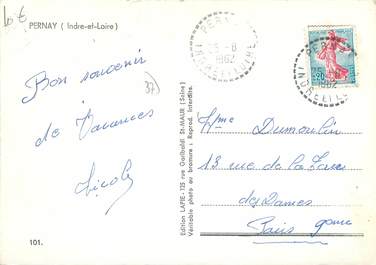 10 €
PERNAY (Indre-et-Loire)
PERNAY
25-8
1962
INDRE ET LOIRE
0,20
PERNAY
1962
INDRE ET LOIRE
Bon souvenir
de Vacances
Nicole
37
Edition LAPIE - 125 rue Garibaldi St-MAUR (Seine)
Véritable photo au bromure : Reprod. Interdite.
Mme Dumoulin
13 rue de la Tour
des Dames
Paris 9ème
101.